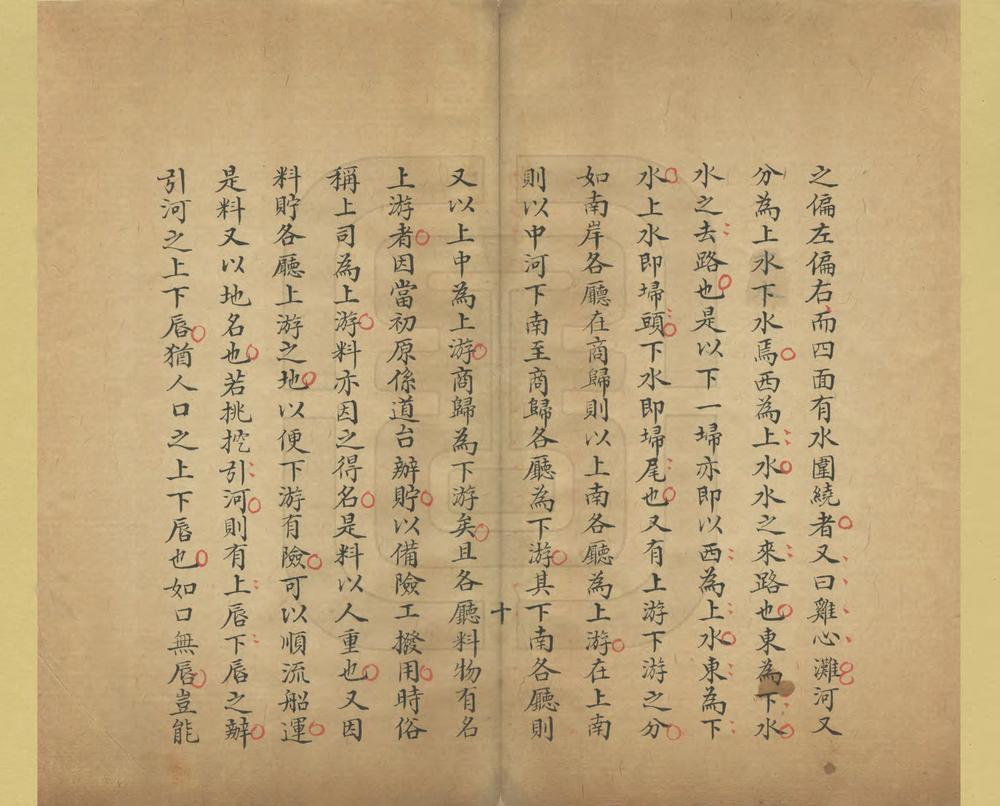 之偏左偏右而四面有水圍繞者又曰雞心灘河又
分為上水下水焉西為上水水之來路也東為下水
水之去路也是以下一埽亦即以西為上水東為下
水上水即埽頭下水即埽尾也又有上游下游之分
如南岸各廳在商歸則以上南各廳為上游在上南
則以中河下南至商歸各廳為下游其下南各廳則
十
又以上中為上游商歸為下游矣且各廳料物有名
上游者因當初原係道台辦貯以備險工撥用時俗
稱上司為上游料亦因之得名是料以人重也又因
料貯各廳上游之地以便下游有險可以順流船運
是料又以地名也若挑挖引河則有上唇下唇之辦
引河之上下唇猶人口之上下唇也如口無唇豈能